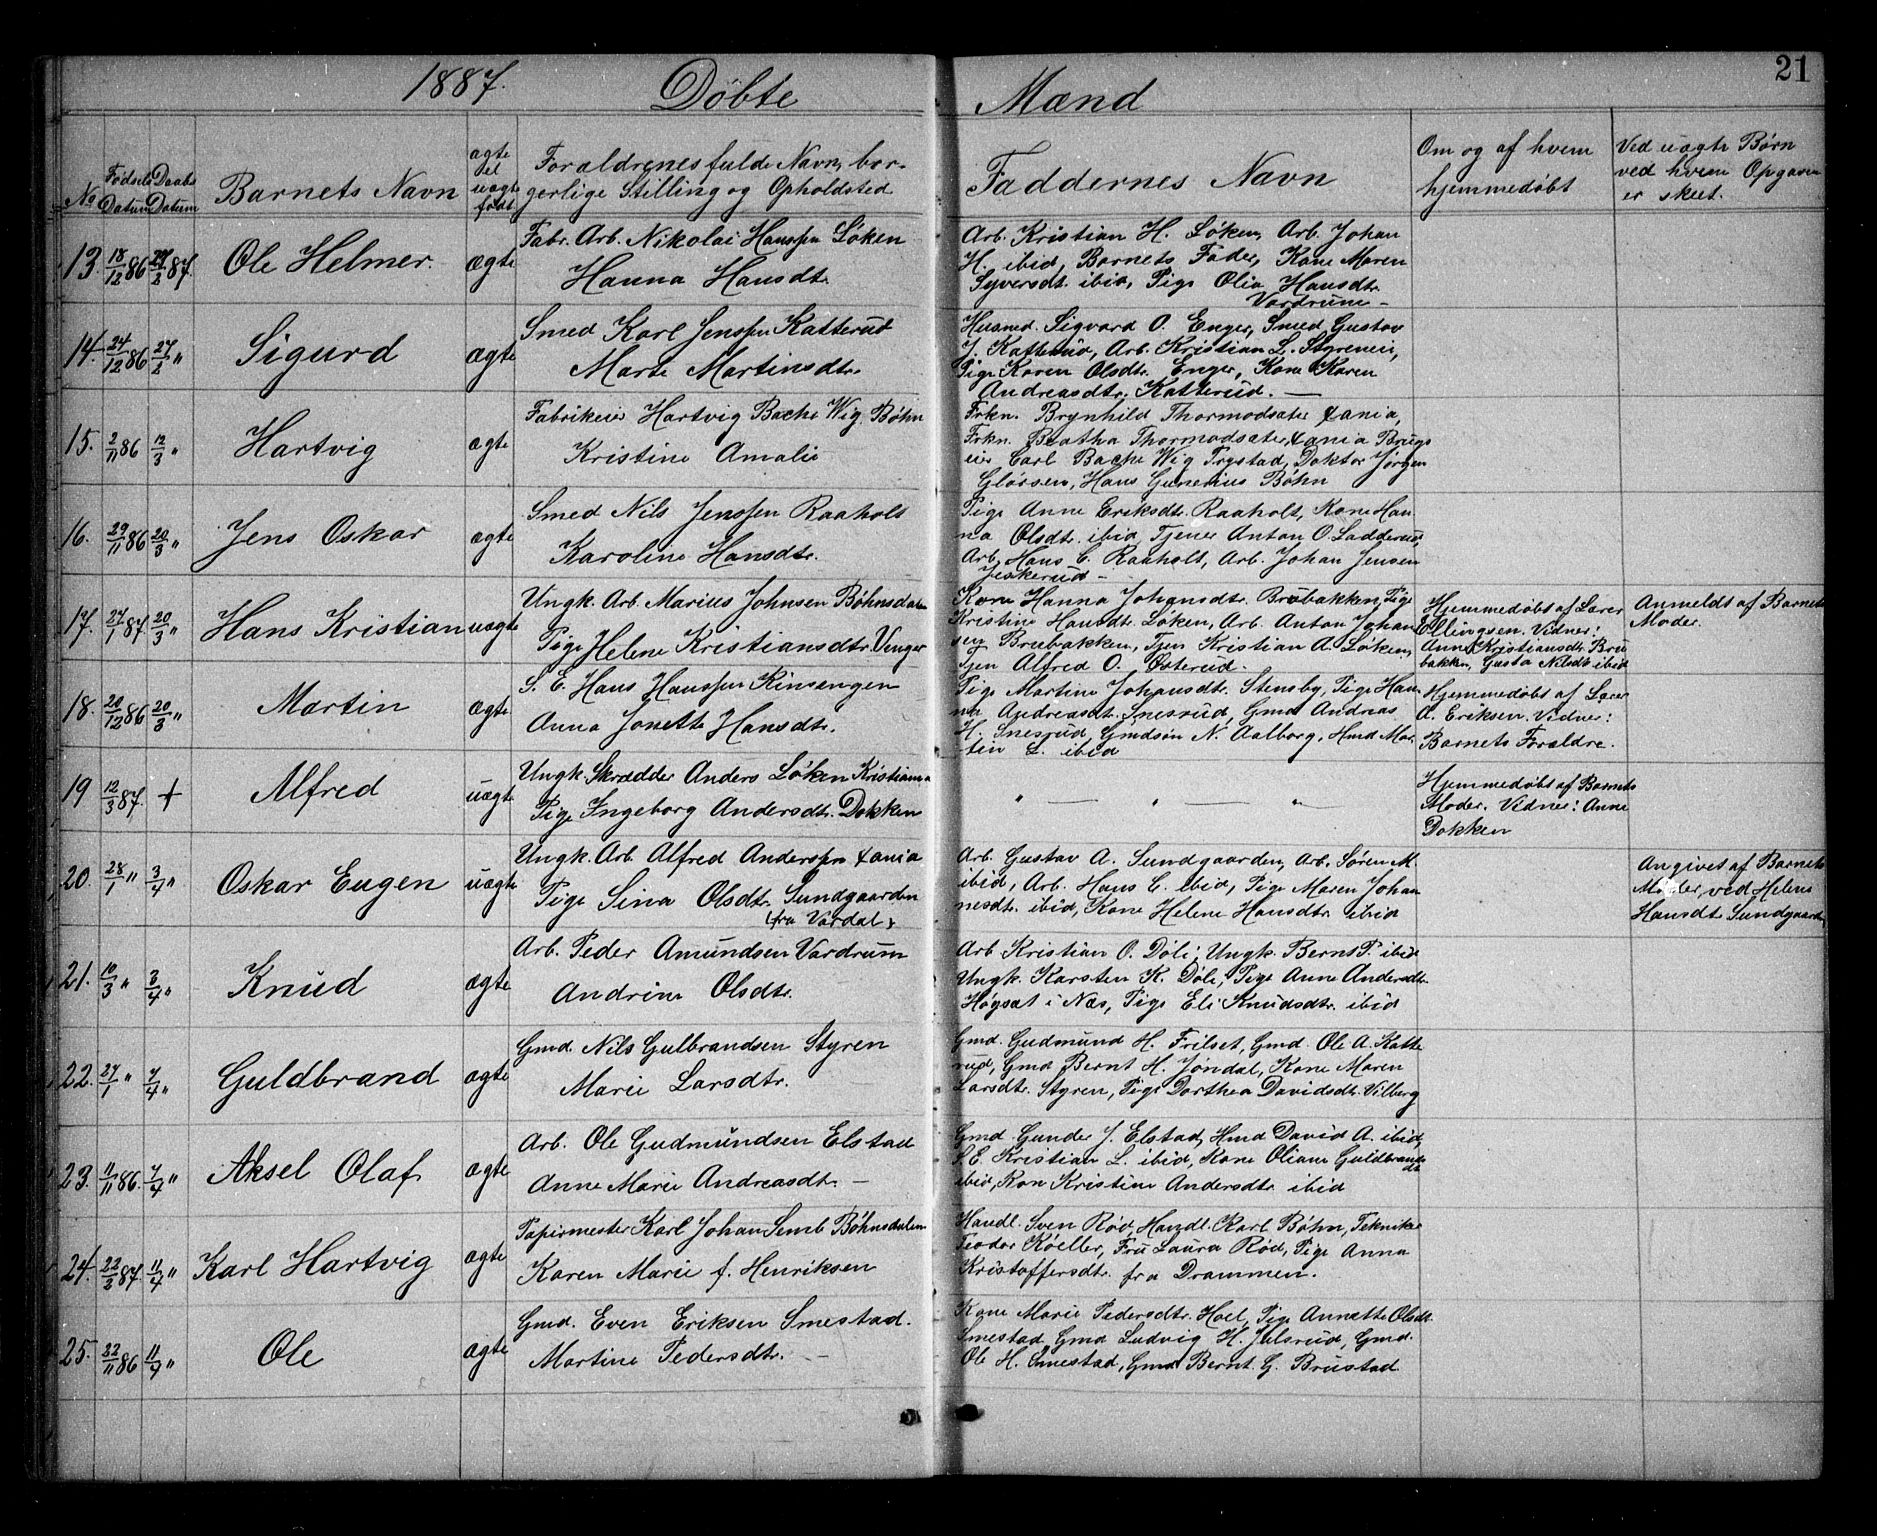 1887. Døbte Mænd 21
No Fødsels Datum Daabs Datum Barnets Navn ægte el uægte født Forældrenes fulde Navn, bor-
gerlige Stilling og Opholdsted
Faddernes Navn
Om og af hvem
hjemmedøbt
Ved uægte Børn
ved hvem Opgaven
er skeet.
13. 18/12 86 27/2 87. Ole Helmer. ægte
Fabr. Arb. Nikolai Hanssen Løken
Hanna Hansdtr.
Arb. Kristian H. Løken, Arb. Johan
H. ibid, Barnets Fader, Kone Maren
Syversdtr. ibid, Pige Olia Hansdtr.
Vardrum –
14. 24/12 86 27/2 " Sigurd ægte
Smed Karl Jenssen Katterud
Marte Martinsdtr.
Husmd. Sigvard O. Enger, Smed Gustav
J. Katterud, Arb. Kristian L. Styreneie,
Pige Karen Olsdtr. Enger, Kone Karen
Andreasdtr. Katterud. —
15. 2/11 86 12/3 " Hartvig ægte
Fabrikeier Hartvig Bache Wig. Bøhn
Kristine Amalie
Frkn. Brynhild Thormodsæter Xania,
Frkn. Beatha Thormodsæter, Xania Brugs
eier Carl Bache Wig Frystad, Doktor Jørgen
Glørsen, Hans Gunerius Bøhn
16. 29/11 86 20/3 " Jens Oskar ægte
Smed Nils Jenssen Raaholt
Karoline Hansdtr.
Pige Anne Eriksdtr. Raaholt, Kone Han
na Olsdtr. ibid, Tjener Anton O. Ladderud,
Arb. Hans C. Raaholt, Arb. Johan Jensen
Jeskerud –
17. 27/1 87. 20/3 " Hans Kristian uægte
Ungk. Arb. Marius Johnsen Bøhnsdalen
Pige Helene Kristiansdtr. Venger
Kone Hanna Johansdtr. Brubakken, Pige
Kristine Hansdtr. Løken, Arb. Anton Johan
sen Brubakken, Tjen Kristian A. Løken,
Tjen Alfred O. Østerud.
Hjemmedøbt af Lærer
Ellingsen. Vidner:
Anne Kristiansdtr. Bru
bakken, Gusta Nilsdtr ibid
Anmeldt af Barnets
Moder.
18. 20/12 86 20/3 " Martin ægte
S. E. Hans Hanssen Kinsengen
Anna Jonette Hansdtr.
Pige Martine Johansdtr. Stensby, Pige Han
na Andreasdtr. Snesrud, Gmd Andreas
H. Snesrud, Gmdsøn N. Aalborg, Hmd Mar
tin L. ibid
Hjemmedøbt af Lærer
A. Eriksen. Vidner:
Barnets Forældre.
19 12/3 87. + Alfred uægte
Ungk. Skrædder Anders Løken Kristiania
Pige Ingeborg Andersdtr. Dokken
" — " — "
Hjemmedøbt af Barnets
Moder. Vidner: Anne
Dokken
20. 28/1 " 3/4 " Oskar Eugen uægte
Ungk. Arb. Alfred Anderssen Xania
Pige Sina Olsdtr. Sundgaarden
(fra Vardal)
Arb. Gustav A. Sundgaarden, Arb. Søren M.
ibid, Arb. Hans C. ibid, Pige Maren Johan
nesdtr. ibid, Kone Helene Hansdtr. ibid
Angivet af Barnets
Moder, ved Helene
Hansdtr Sundgaarden
21. 10/3 " 3/4 " Knud ægte
Arb. Peder Amundsen Vardrum
Andrine Olsdtr.
Arb Kristian O. Døli, Ungk. Bernt P. ibid
Ungk. Karsten K. Døli, Pige Anne Andersdtr.
Høgsæt i Næs, Pige Eli Knudsdtr. ibid
22. 27/1 " 7/4 " Guldbrand ægte
Gmd. Nils Gulbrandsen Styren
Marie Larsdtr.
Gmd. Gudmund H. Frilset, Gmd. Ole A. Katte
rud, Gmd Bernt H. Jøndal, Kone Maren
Larsdtr. Styren, Pige Dorthea Davidsdtr. Vilberg
23. 11/11 86. 7/4 " Aksel Olaf ægte
Arb. Ole Gudmundsen Elstad
Anne Marie Andreasdtr. –
Gmd. Gunder J. Elstad, Hmd David A. ibid,
S. E. Kristian L. ibid, Kone Oliane Guldbrands
dtr.
ibid, Kon Kristine Andersdtr. ibid
24. 22/2 87. 11/4 " Karl Hartvig ægte
Papirmester Karl Johan Semb Bøhnsdalen
Karen Marie f. Henriksen
Handl. Sven Rød, Handl. Karl Bøhn, Tekniker
Teodor Køeller, Fru Laura Rød, Pige Anna
Kristoffersdtr. fra Drammen.
25. 22/11 86 11/4 " Ole ægte
Gmd. Even Eriksen Smestad.
Martine Pedersdtr. –
Kone Marie Pedersdtr. Hoel, Pige Annette Olsdtr.
Smestad, Gmd Ludvig H. Julsrud, Gmd.
Ole H. Smestad, Gmd Bernt G. Brustad